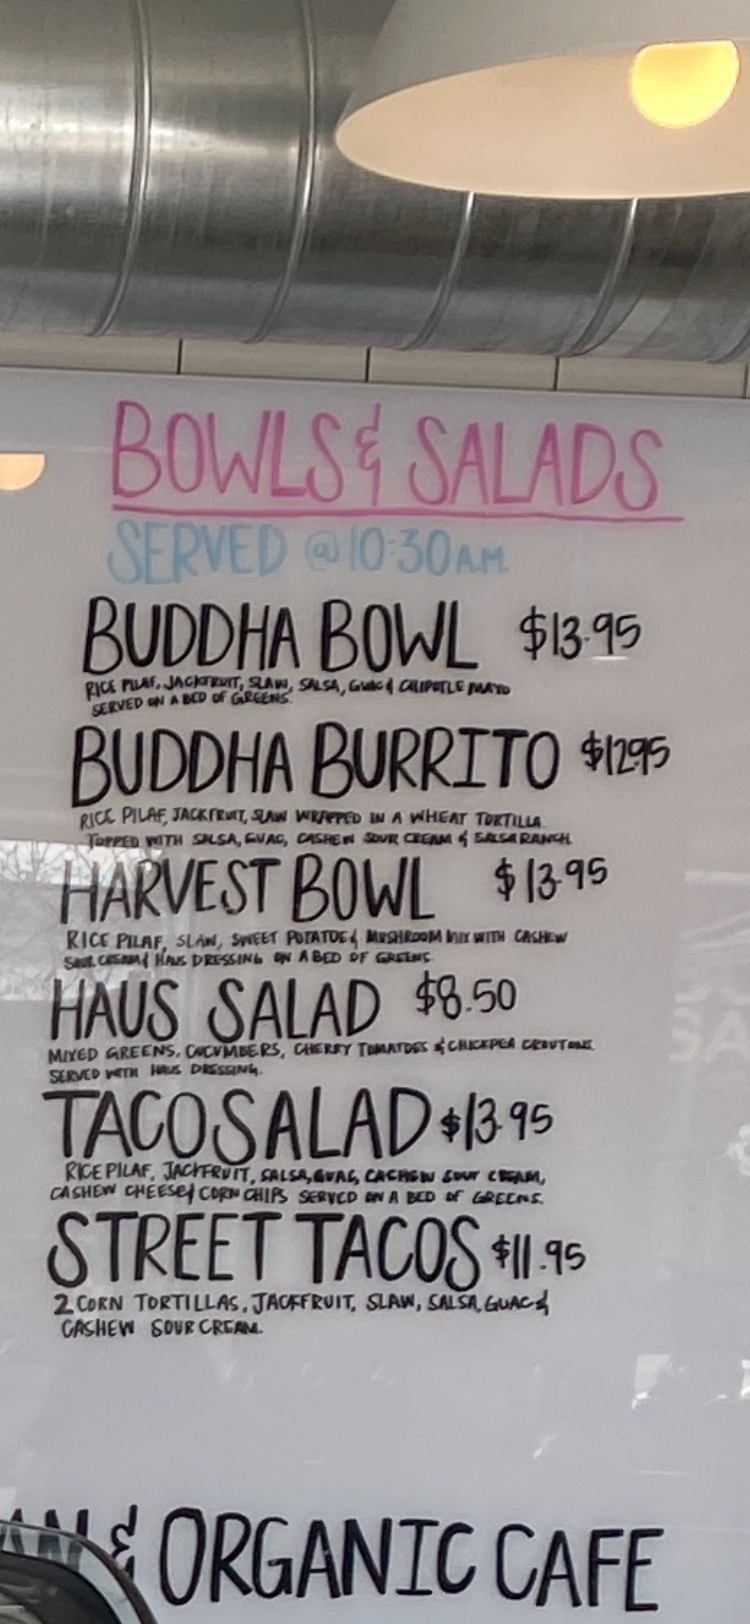 BOWLS & SALADS
SERVED @ 10:30 A.M
BUDDHA BOWL $13.95
RICE PILAF, JACKFRUIT, SLAW, SALSA, GUAC & CHIPOTLE MAYO
SERVED ON A BED OF GREENS.
BUDDHA BURRITO $12.95
RICE PILAF, JACKFRUIT, SLAW WRAPPED IN A WHEAT TORTILLA.
TOPPED WITH SALSA, GUAC, CASHEW SOUR CREAM & SALSA RANCH.
HARVEST BOWL $13.95
RICE PILAF, SLAW, SWEET POTATOE & MUSHROOM MIX WITH CASHEW
SOUR CREAM & HAUS DRESSING ON A BED OF GREENS
HAUS SALAD $8.50
MIXED GREENS, CUCUMBERS, CHERRY TOMATOES & CHICKPEA CROUTONS.
SERVED WITH HAUS DRESSING.
TACO SALAD $13.95
RICE PILAF, JACKFRUIT, SALSA, GUAC, CASHEW SOUR CREAM,
CASHEW CHEESE & CORN CHIPS SERVED ON A BED OF GREENS.
STREET TACOS $11.95
2 CORN TORTILLAS, JACKFRUIT, SLAW, SALSA, GUAC &
CASHEW SOUR CREAM.
& ORGANIC CAFE